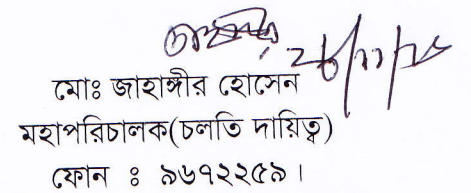 মোঃ জাহাঙ্গীর হোসেন
মহাপরিচালক(চলতি দায়িত্ব)
ফোন ঃ ৯৬৭২২৫৯।